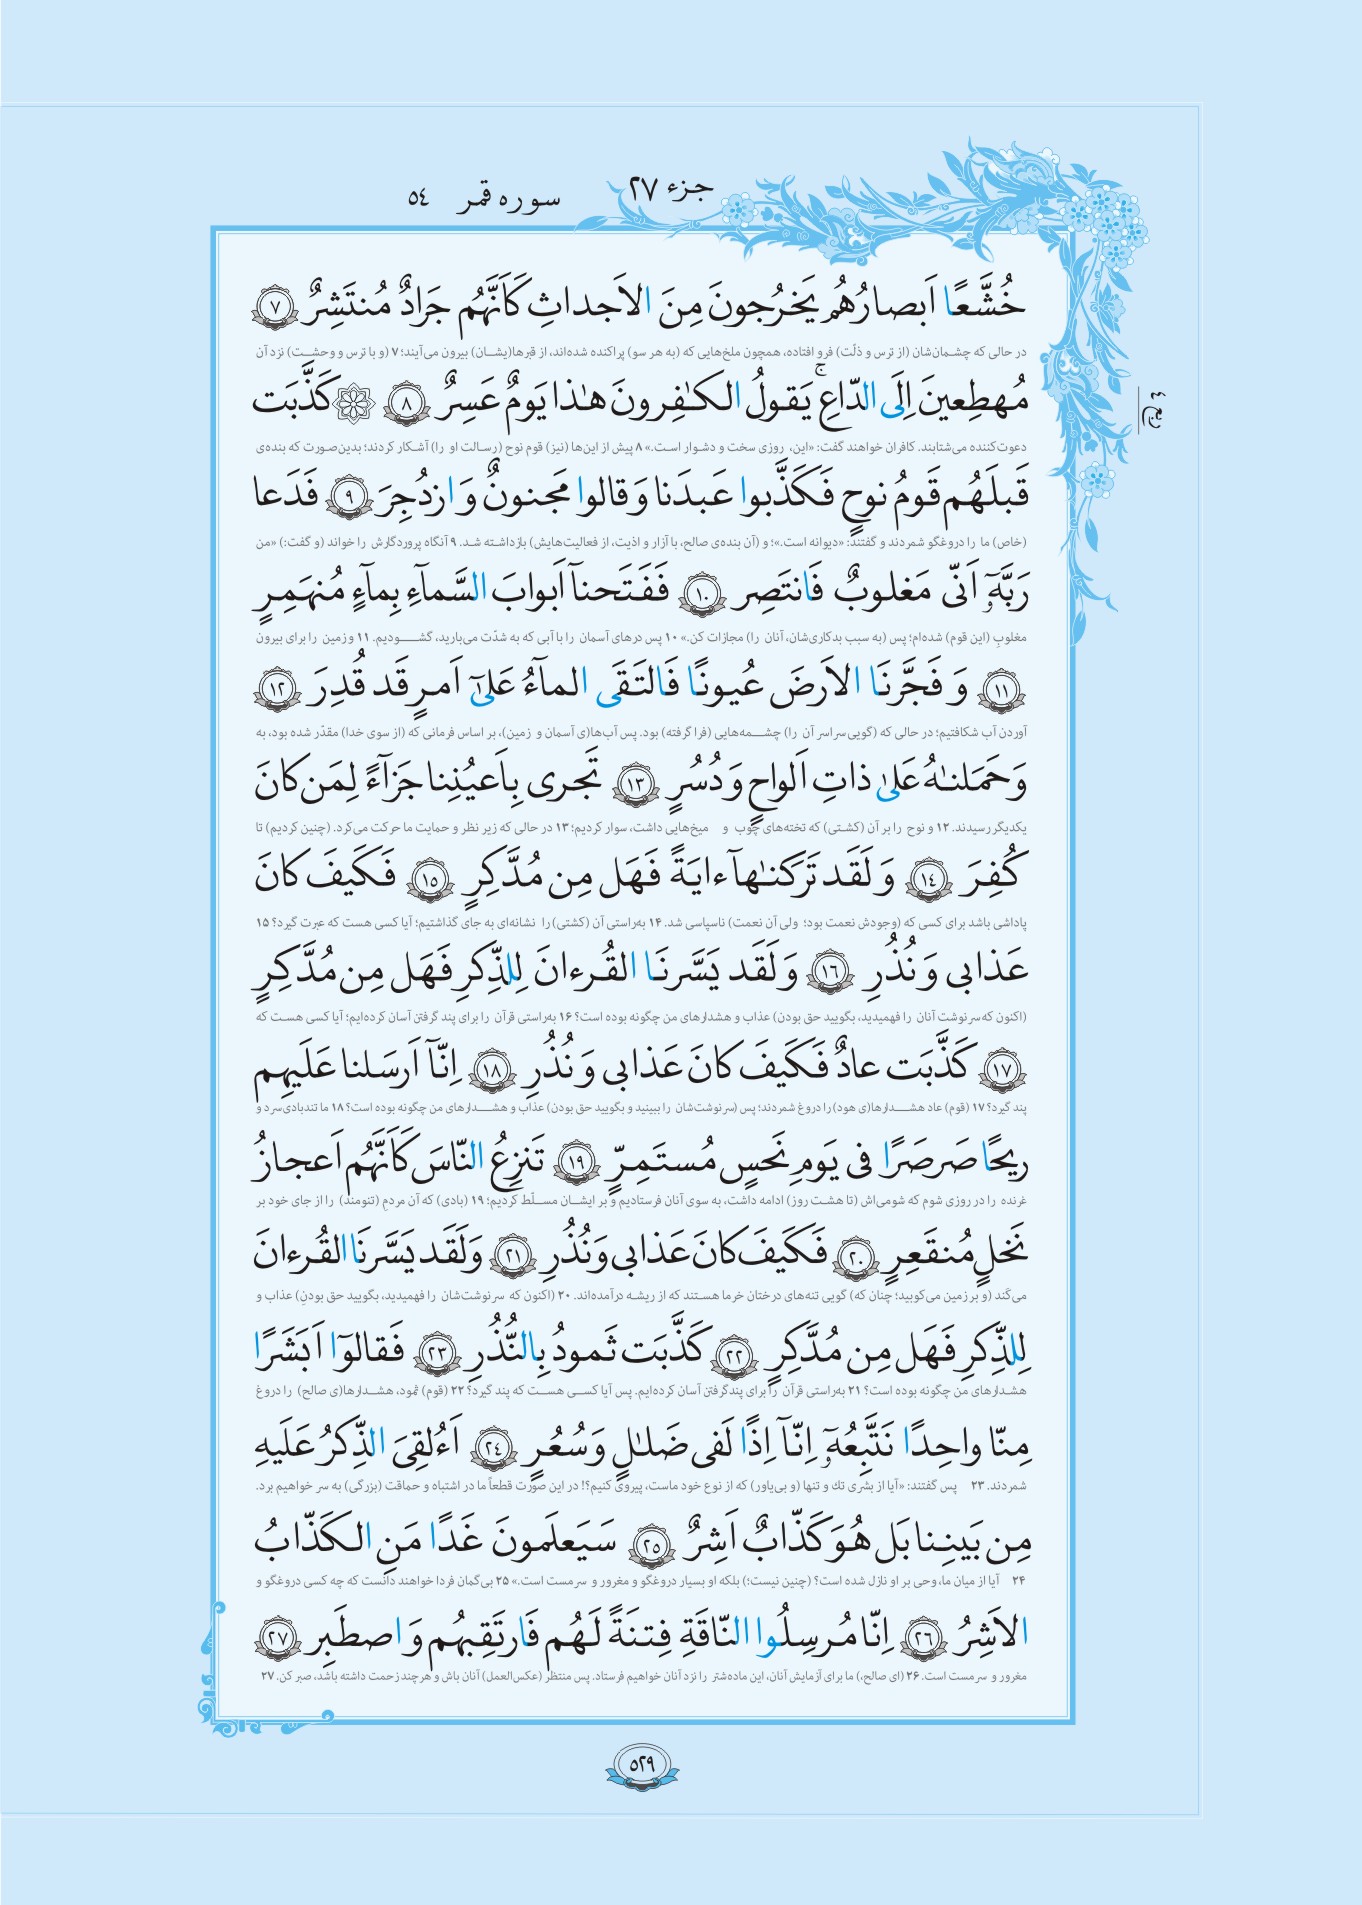 جزء ٢٧
سوره قمر ٥٤
ربع ٤
خُشَّعًا اَبصارُهُم يَخرُجونَ مِنَ الاَجداثِ كَاَنَّهُم جَرادٌ مُنتَشِرٌ ٧
در حالی که چشمان‌شان (از ترس و ذلّت) فرو افتاده، همچون ملخ‌هایی که (به هر سو) پراکنده شده‌اند، از قبرها(یشان) بیرون می‌آیند؛ ۷ (و با ترس و وحشت) نزد آن
مُهطِعينَ اِلَى الدّاعِ ۚ يَقولُ الكـٰفِرونَ هـٰذا يَومٌ عَسِرٌ ٨ ۞ كَذَّبَت
دعوت‌کننده می‌شتابند. کافران خواهند گفت: «این، روزی سخت و دشوار است.» ۸ پیش از این‌ها (نیز) قوم نوح (رسالت او را) آشکار کردند؛ بدین‌صورت که بنده‌ی
قَبلَهُم قَومُ نوحٍ فَكَذَّبوا عَبدَنا وَ قالوا مَجنونٌ وَ ازدُجِرَ ٩ فَدَعا
(خاص) ما را دروغگو شمردند و گفتند: «دیوانه است.»؛ و (آن بنده‌ی صالح، با آزار و اذیت، از فعالیت‌هایش) بازداشته شد. ۹ آنگاه پروردگارش را خواند (و گفت:) «من
رَبَّهٗٓ اَنّى مَغلوبٌ فَانتَصِر ١٠ فَفَتَحنآ اَبوابَ السَّمآءِ بِمآءٍ مُنهَمِرٍ
مغلوب (این قوم) شده‌ام؛ پس (به سبب بدکاری‌شان، آنان را) مجازات کن.» ۱۰ پس درهای آسمان را با آبی که به شدّت می‌بارید، گشودیم. ۱۱ و زمین را برای بیرون
١١ وَ فَجَّرنَا الاَرضَ عُيونًا فَالتَقَى المآءُ عَلىٰٓ اَمرٍ قَد قُدِرَ ١٢
آوردن آب شکافتیم؛ در حالی که (گویی سراسر آن را) چشمه‌هایی (فرا گرفته) بود. پس آب‌ها(ی آسمان و زمین)، بر اساس فرمانی که (از سوی خدا) مقدّر شده بود، به
وَ حَمَلنـٰهُ عَلىٰ ذاتِ اَلواحٍ وَ دُسُرٍ ١٣ تَجرى بِاَعيُنِنا جَزآءً لِمَن كانَ
یکدیگر رسیدند. ۱۲ و نوح را بر آن (کشتی) که تخته‌های چوب و میخ‌هایی داشت، سوار کردیم؛ ۱۳ در حالی که زیر نظر و حمایت ما حرکت می‌کرد. (چنین کردیم) تا
كُفِرَ ١٤ وَ لَقَد تَرَكنـٰهآ ءايَةً فَهَل مِن مُدَّكِرٍ ١٥ فَكَيفَ كانَ
پاداشی باشد برای کسی که (وجودش نعمت بود؛ ولی آن نعمت) ناسپاسی شد. ۱۴ به‌راستی آن (کشتی) را نشانه‌ای به جای گذاشتیم؛ آیا کسی هست که عبرت گیرد؟ ۱۵
عَذابى وَ نُذُرِ ١٦ وَ لَقَد يَسَّرنَا القُرءانَ لِلذِّكرِ فَهَل مِن مُدَّكِرٍ
(اکنون که سرنوشت آنان را فهمیدید، بگویید حق بودن) عذاب و هشدارهای من چگونه بوده است؟ ۱۶ به‌راستی قرآن را برای پند گرفتن آسان کرده‌ایم؛ آیا کسی هست که
١٧ كَذَّبَت عادٌ فَكَيفَ كانَ عَذابى وَ نُذُرِ ١٨ اِنّآ اَرسَلنا عَلَيهِم
پند گیرد؟ ۱۷ (قوم) عاد هشدارها(ی هود) را دروغ شمردند؛ پس (سرنوشت‌شان را ببینید و بگویید حق بودن) عذاب و هشدارهای من چگونه بوده است؟ ۱۸ ما تندبادی سرد و
ريحًا صَرصَرًا فى يَومِ نَحسٍ مُستَمِرٍّ ١٩ تَنزِعُ النّاسَ كَاَنَّهُم اَعجازُ
غرنده را در روزی شوم که شومی‌اش (تا هشت روز) ادامه داشت، به سوی آنان فرستادیم و بر ایشان مسلّط کردیم؛ ۱۹ (بادی) که آن مردمِ (تنومند) را از جای خود بر
نَخلٍ مُنقَعِرٍ ٢٠ فَكَيفَ كانَ عَذابى وَ نُذُرِ ٢١ وَ لَقَد يَسَّرنَا القُرءانَ
می‌کَند (و بر زمین می‌کوبید؛ چنان که) گویی تنه‌های درختان خرما هستند که از ریشه درآمده‌اند. ۲۰ (اکنون که سرنوشت‌شان را فهمیدید، بگویید حق بودنِ) عذاب و
لِلذِّكرِ فَهَل مِن مُدَّكِرٍ ٢٢ كَذَّبَت ثَمودُ بِالنُّذُرِ ٢٣ فَقالوٓا اَبَشَرًا
هشدارهای من چگونه بوده است؟ ۲۱ به‌راستی قرآن را برای پندگرفتن آسان کرده‌ایم. پس آیا کسی هست که پند گیرد؟ ۲۲ (قوم) ثمود، هشدارها(ی صالح) را دروغ
مِنّا واحِدًا نَتَّبِعُهٗٓ اِنّآ اِذًا لَفى ضَلـٰلٍ وَ سُعُرٍ ٢٤ اَءُلقِىَ الذِّكرُ عَلَيهِ
شمردند. ۲۳ پس گفتند: «آیا از بشری تک و تنها (و بی‌یاور) که از نوع خود ماست، پیروی کنیم؟! در این صورت قطعاً ما در اشتباه و حماقت (بزرگی) به سر خواهیم برد.
مِن بَينِنا بَل هُوَ كَذّابٌ اَشِرٌ ٢٥ سَيَعلَمونَ غَدًا مَنِ الكَذّابُ
۲۴ آیا از میان ما، وحی بر او نازل شده است؟ (چنین نیست؛) بلکه او بسیار دروغگو و مغرور و سرمست است.» ۲۵ بی‌گمان فردا خواهند دانست که چه کسی دروغگو و
الاَشِرُ ٢٦ اِنّا مُرسِلُوا النّاقَةِ فِتنَةً لَهُم فَارتَقِبهُم وَ اصطَبِر ٢٧
مغرور و سرمست است. ۲۶ (ای صالح،) ما برای آزمایش آنان، این ماده‌شتر را نزد آنان خواهیم فرستاد. پس منتظر (عکس‌العمل) آنان باش و هرچند زحمت داشته باشد، صبر کن. ۲۷
٥٢٩